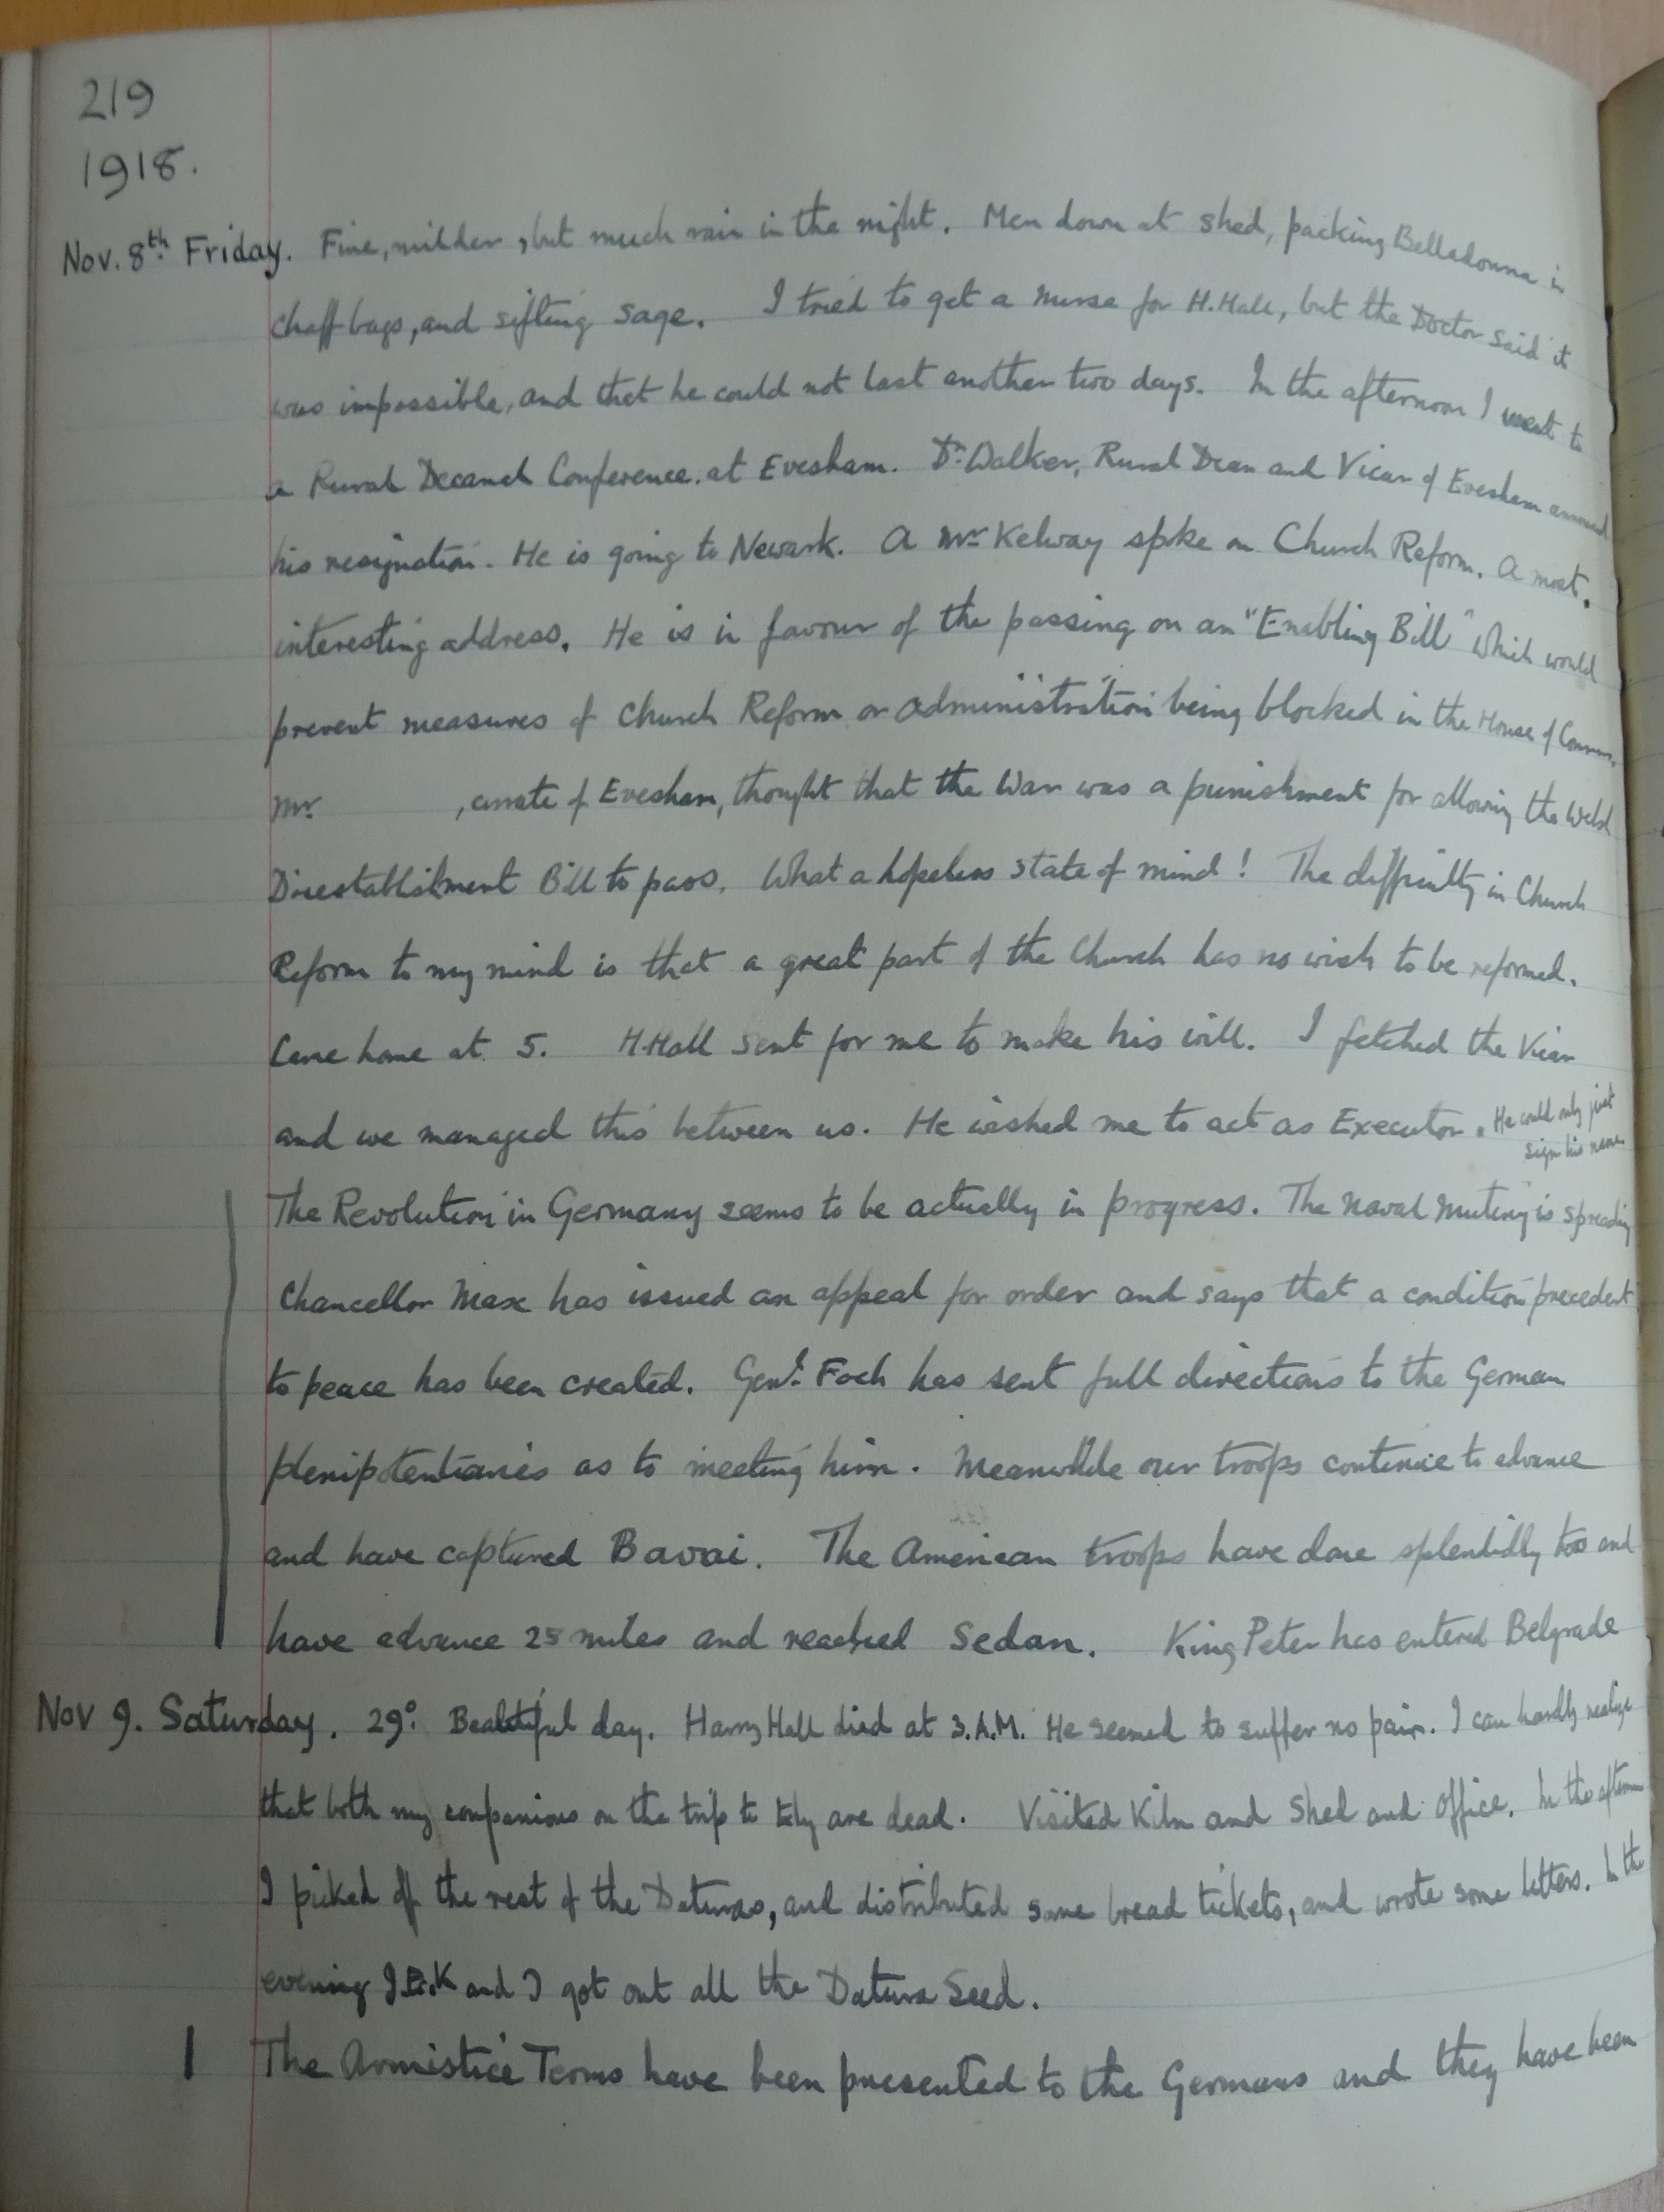 219
1918.
Nov. 8th Friday. Fine, milder, but much rain in the night. Men down at shed, packing Belladonna in
chaff bags, and sifting sage. I tried to get a nurse for H. Hall, but the Doctor said it
was impossible, and that he could not last another two days. In the afternoon I went to
a Rural Decanal Conference. at Evesham. Dr. Walker, Rural Dean and Vicar of Evesham announced
his resignation. He is going to Newark. A Mr Kelway spoke on Church Reform. A most.
interesting address. He is in favour of the passing on an "Enabling Bill" which would
prevent measures of Church Reform or administration being blocked in the House of Commons.
Mr. , curate of Evesham, thought that the War was a punishment for allowing the Welsh
Disestablishment Bill to pass. What a hopeless state of mind! The difficulty in Church
Reform to my mind is that a great part of the Church has no wish to be reformed.
Came home at 5. H. Hall sent for me to make his will. I fetched the Vicar
and we managed this between us. He wished me to act as Executor. He could only just
sign his name
The Revolution in Germany seems to be actually in progress. The naval mutiny is spreading
Chancellor Max has issued an appeal for order and says that a condition precedent
to peace has been created. Genl. Foch has sent full directions to the German
plenipotentiaries as to meeting him. Meanwhile our troops continue to advance
and have captured Bavai. The American troops have done splendidly too and
have advance 25 miles and reached Sedan. King Peter has entered Belgrade
Nov 9. Saturday. 29°. Beautiful day. Harry Hall died at 3.A.M. He seemed to suffer no pain. I can hardly realize
that both my companions on the trip to are dead. Visited Kiln and Shed and Office. In the afternoon
I picked off the rest of the Daturas, and distributed some bread tickets, and wrote some letters. In the
evening and I got out all the Datura Seed.
The Armistice Terms have been presented to the Germans and they have been